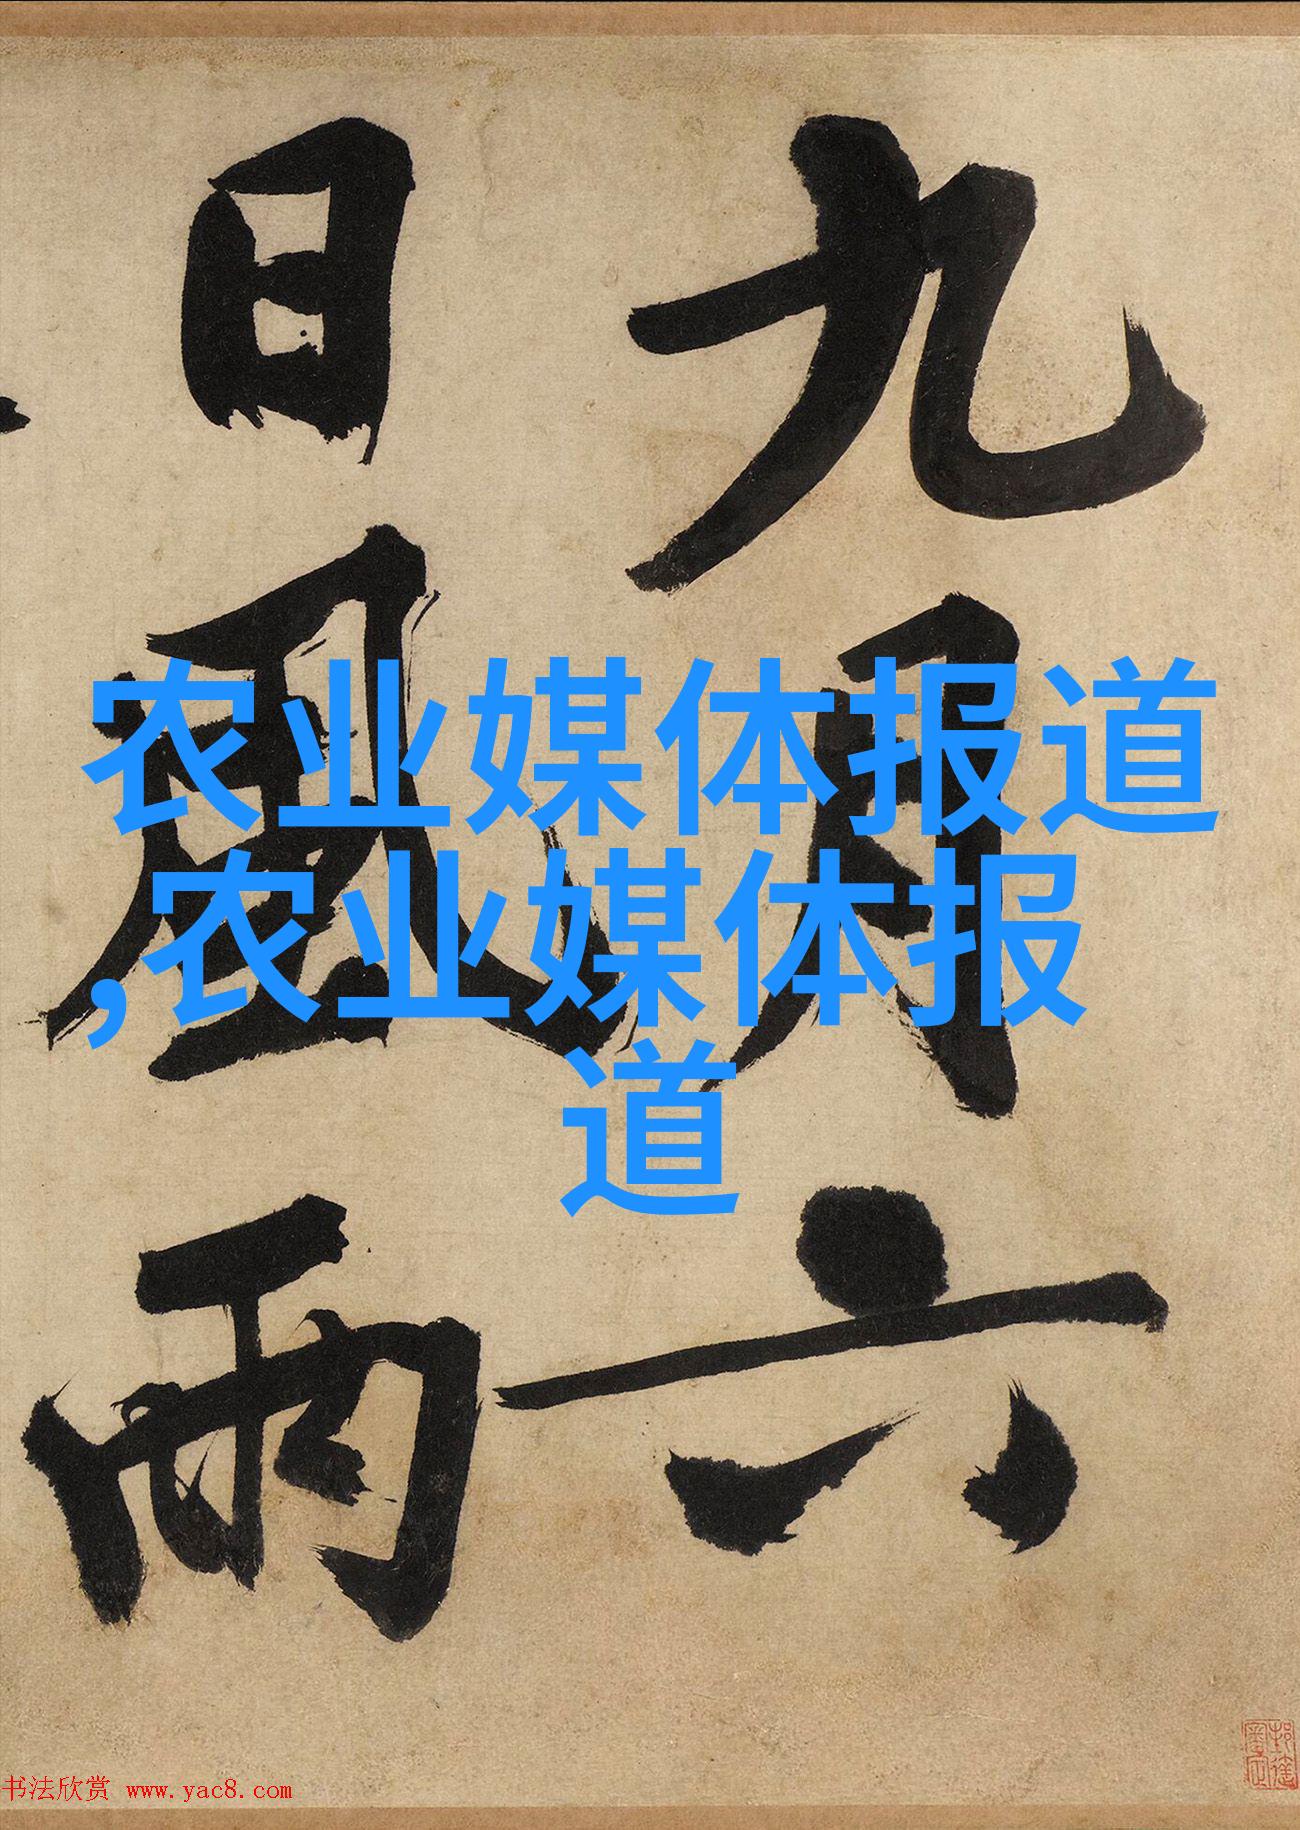 九月六
日风雨
农业媒体报道
,农业媒体报
道
书法欣赏 www.yac8.com